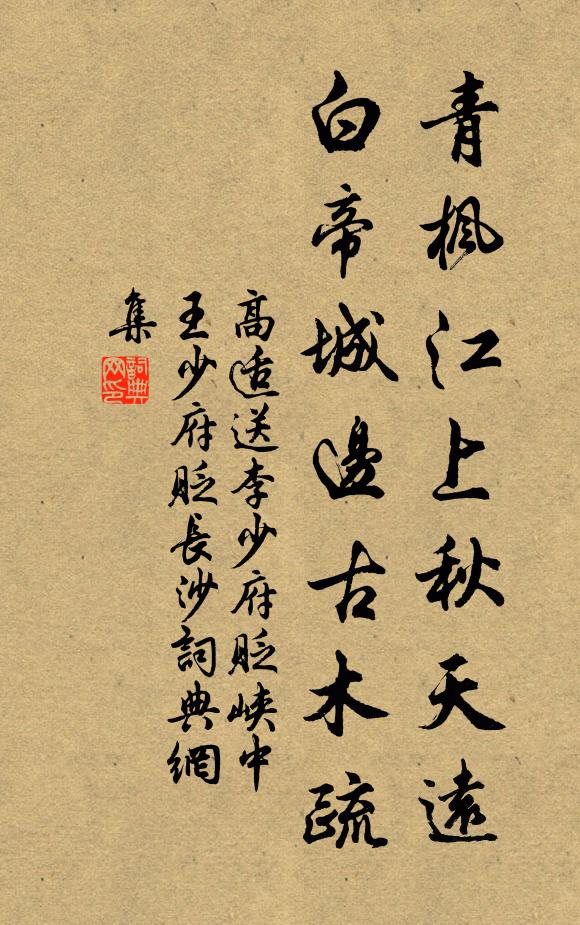 青楓江上秋天遠
白帝城邊古木疏
高適送李少府貶峽中
王少府貶長沙詞典網
集
詞典
网印